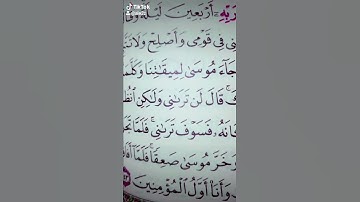 TikTok
رَبِّهِۦٓ أَرْبَعِينَ
فِي قَوْمِي وَأَصْلِحْ
جَآءَ مُوسَىٰ لِمِيقَٰتِنَا
قَالَ لَن تَرَىٰنِي وَلَٰكِنِ
فَسَوْفَ تَرَىٰنِي ۚ فَلَمَّا
وَخَرَّ مُوسَىٰ صَعِقًا ۚ فَلَمَّآ
وَأَنَا۠ أَوَّلُ ٱلْمُؤْمِنِينَ